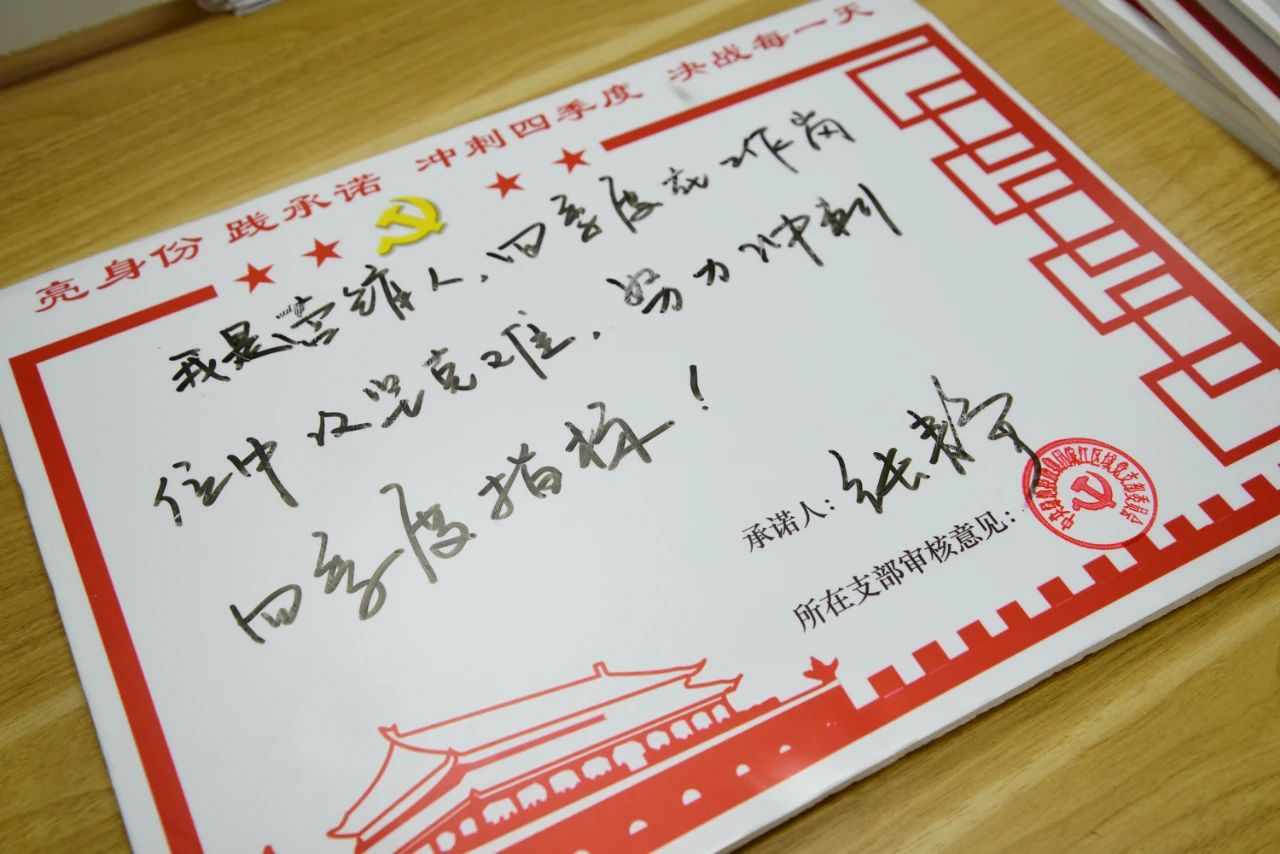 亮身份 践承诺 冲刺四季度 决战每一天
我是营销人,四季度在工作岗
位中攻坚克难,努力冲刺
四季度指标!
承诺人:张静
所在支部审核意见: